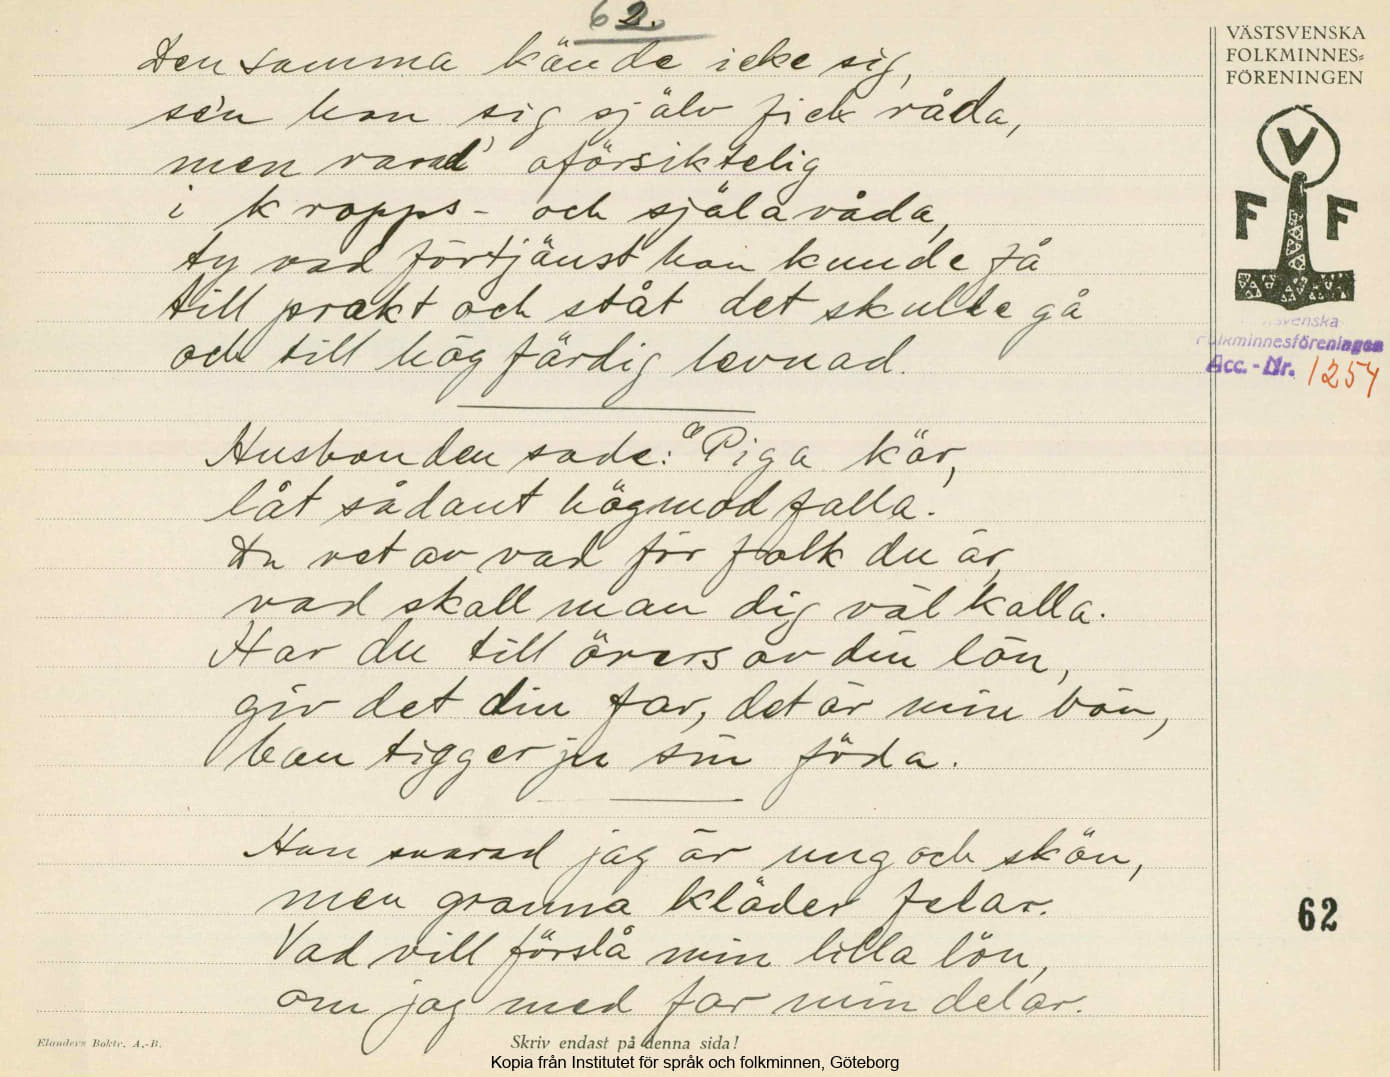 62.
Den samma kände icke sig,
se'n hon sig själv fick råda,
men varad' oförsiktelig
i kropps- och själavåda,
ty vad förtjänst hon kunde få
till prakt och ståt det skulle gå
och till högfärdig levnad.
Husbonden sade: "Piga kär,
låt sådant högmod falla.
Du vet av vad för folk du är,
vad skall man dig väl kalla.
Har du till övers av din lön,
giv det din far, det är min bön,
han tigger ju sin föda.
Hon svarad jag är ung och skön,
men granna kläder felar.
Vad vill förslå min lilla lön,
om jag med far min delar.
VÄSTSVENSKA
FOLKMINNES=
FÖRENINGEN
V
F F
Folkminnesföreningen
Acc.-Nr. 1254
62
Elanders Boktr. A.-B.
Skriv endast på denna sida!
Kopia från Institutet för språk och folkminnen, Göteborg